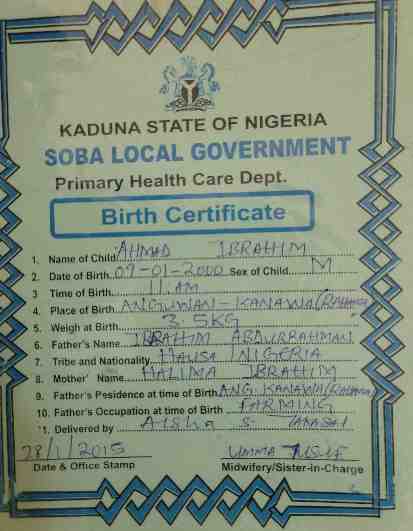 KADUNA STATE OF NIGERIA
SOBA LOCAL GOVERNMENT
Primary Health Care Dept.
Birth Certificate
1. Name of Child AHMAD IBRAHIM
2. Date of Birth 09-01-2000 Sex of Child M
3 Time of Birth 11 AM
4. Place of Birth ANGUWAN-KANAWA
5. Weigh at Birth 3.5KG
6. Father's Name IBRAHIM ABDURRAHMAN
7. Tribe and Nationality HAUSA NIGERIA
8. Mother' Name HALIMA IBRAHIM
9. Father's Pesidence at time of Birth ANG. KANAWA
10. Father's Occupation at time of Birth FARMING
11. Delivered by AISHA S.
28/1/2015 UMMA YUSUF
Date & Office Stamp Midwifery/Sister-in-Charge